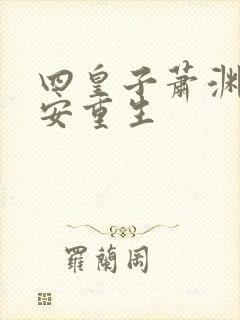 四皇子蕭渊
安重生
羅蘭岡